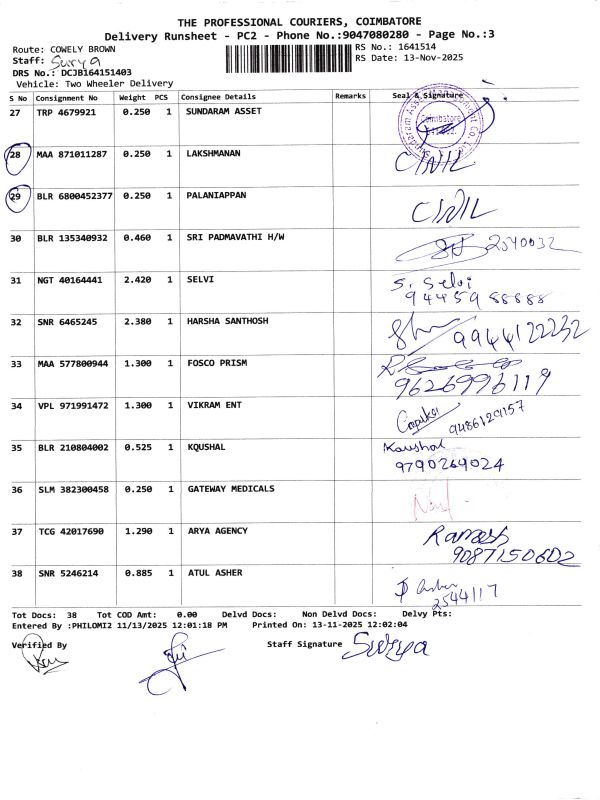 THE PROFESSIONAL COURIERS, COIMBATORE
Delivery Runsheet - PC2 - Phone No.:9047080280 - Page No.:3
Route: COWELY BROWN RS No.: 1641514
Staff: Surya RS Date: 13-Nov-2025
DRS No.: DCJB164151403
Vehicle: Two Wheeler Delivery
S No Consignment No Weight PCS Consignee Details Remarks Seal & Signature
27 TRP 4679921 0.250 1 SUNDARAM ASSET Coimbatore
28 MAA 871011287 0.250 1 LAKSHMANAN
29 BLR 6800452377 0.250 1 PALANIAPPAN
30 BLR 135340932 0.460 1 SRI PADMAVATHI H/W 2540032
31 NGT 40164441 2.420 1 SELVI S. Selvi
94459 88888
32 SNR 6465245 2.380 1 HARSHA SANTHOSH 9944122232
33 MAA 577800944 1.300 1 FOSCO PRISM
9626996119
34 VPL 971991472 1.300 1 VIKRAM ENT 9486129157
35 BLR 210804002 0.525 1 KQUSHAL Kaushal
9790269024
36 SLM 382300458 0.250 1 GATEWAY MEDICALS
37 TCG 42017690 1.290 1 ARYA AGENCY Ramesh
9087150602
38 SNR 5246214 0.885 1 ATUL ASHER
2544117
Tot Docs: 38 Tot COD Amt: 0.00 Delvd Docs: Non Delvd Docs: Delvy Pts:
Entered By :PHILOMI2 11/13/2025 12:01:18 PM Printed On: 13-11-2025 12:02:04
Verified By Staff Signature Surya